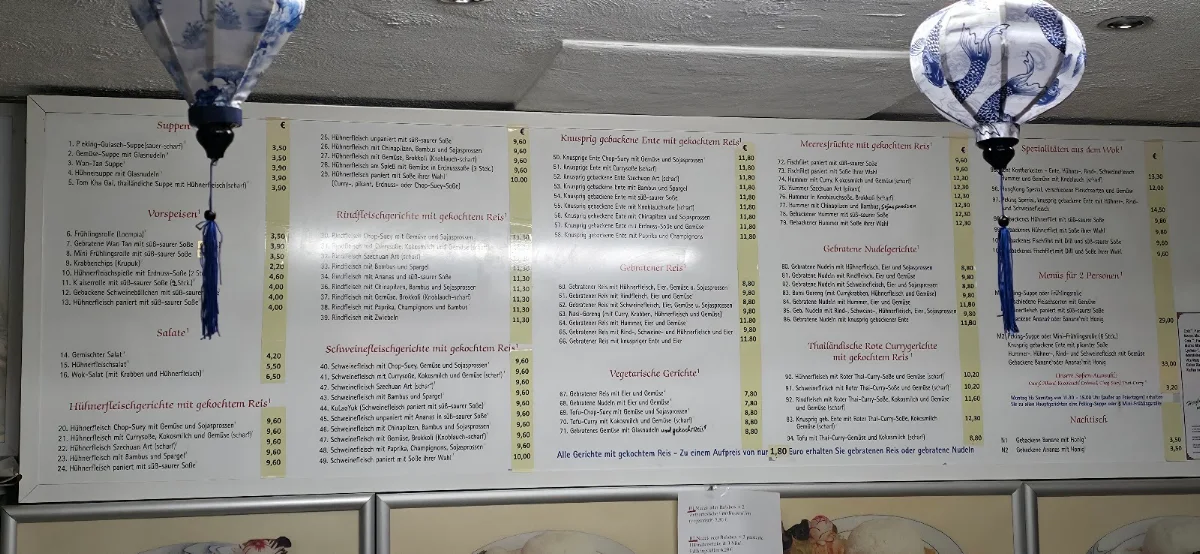 Suppen
€
1. Peking-Gulasch-Suppe(sauer-scharf) 3,50
2. Gemüse-Suppe mit Glasnudeln 3,50
3. Wan-Tan Suppe 3,90
4. Hühnersuppe mit Glasnudeln 3,90
5. Tom Kha Gai, thailändische Suppe mit Hühnerfleisch(scharf) 3,90
Vorspeisen
6. Frühlingsrolle (Loempia) 3,50
7. Gebratene Wan Tan mit süß-saurer Soße 3,90
8. Mini Frühlingsrolle mit süß-saurer Soße 3,50
9. Krabbenchips (Krupuk) 2,20
10. Hühnerfleischspieße mit Erdnuss-Soße 4,60
11. Kaiserrolle mit süß-saurer Soße 4,00
12. Gebackene Schweinebällchen mit süß-saurer 4,00
13. Hühnerfleisch paniert mit süß-saurer Soße 4,00
Salate
14. Gemischter Salat 4,20
15. Hühnerfleischsalat 5,50
16. Wok-Salat (mit Krabben und Hühnerfleisch) 6,50
Hühnerfleischgerichte mit gekochtem Reis
20. Hühnerfleisch Chop-Suey mit Gemüse und Sojasprossen 9,60
21. Hühnerfleisch mit Currysoße, Kokosmilch und Gemüse (scharf) 9,60
22. Hühnerfleisch Szechuan Art (scharf) 9,60
23. Hühnerfleisch mit Bambus und Spargel 9,60
24. Hühnerfleisch paniert mit süß-saurer Soße 9,60
€
25. Hühnerfleisch unpaniert mit süß-saurer Soße 9,60
26. Hühnerfleisch mit Chinapilzen, Bambus und Sojasprossen 9,60
27. Hühnerfleisch mit Gemüse, Brokkoli (Knoblauch-scharf) 9,60
28. Hühnerfleisch am Spieß mit Gemüse in Erdnusssoße (3 Stck.) 9,60
29. Hühnerfleisch paniert mit Soße Ihrer Wahl 10,00
(Curry-, pikant, Erdnuss- oder Chop-Suey-Soße)
Rindfleischgerichte mit gekochtem Reis
Rindfleisch Chop-Suey mit Gemüse und Sojasprossen 11,30
Rindfleisch Szechuan Art (scharf)
33. Rindfleisch mit Bambus und Spargel 11,30
34. Rindfleisch mit Ananas und süß-saurer Soße 11,30
36. Rindfleisch mit Chinapilzen, Bambus und Sojasprossen 11,30
37. Rindfleisch mit Gemüse, Brokkoli (Knoblauch-scharf) 11,30
38. Rindfleisch mit Paprika, Champignons und Bambus 11,30
39. Rindfleisch mit Zwiebeln 11,30
Schweinefleischgerichte mit gekochtem Reis
40. Schweinefleisch mit Chop-Suey, Gemüse und Sojasprossen 9,60
41. Schweinefleisch mit Currysoße, Kokosmilch und Gemüse (scharf) 9,60
42. Schweinefleisch Szechuan Art (scharf) 9,60
43. Schweinefleisch mit Bambus und Spargel 9,60
44. KuLooYuk (Schweinefleisch paniert mit süß-saurer Soße) 9,60
45. Schweinefleisch unpaniert mit Ananas in süß-saurer Soße 9,60
46. Schweinefleisch mit Chinapilzen, Bambus und Sojasprossen 9,60
47. Schweinefleisch mit Gemüse, Brokkoli (Knoblauch-scharf) 9,60
48. Schweinefleisch mit Paprika, Champignons, Sojasprossen 9,60
49. Schweinefleisch paniert mit Soße Ihrer Wahl 10,00
Knusprig gebackene Ente mit gekochtem Reis
€
50. Knusprige Ente Chop-Suey mit Gemüse und Sojasprossen 11,80
51. Knusprig gebackene Ente mit Currysoße (scharf) 11,80
52. Knusprig gebackene Ente Szechuan Art (scharf) 11,80
53. Knusprig gebackene Ente mit Bambus und Spargel 11,80
54. Knusprig gebackene Ente mit Ananas und süß-saurer Soße 11,80
55. Knusprig gebackene Ente mit Knoblauchsoße (scharf) 11,80
56. Knusprig gebackene Ente mit Chinapilzen und Sojasprossen 11,80
57. Knusprig gebackene Ente mit Erdnuss-Soße und Gemüse 11,80
58. Knusprig gebackene Ente mit Paprika und Champignons 11,80
Gebratener Reis
60. Gebratener Reis mit Hühnerfleisch, Eier, Gemüse u. Sojasprossen 8,80
61. Gebratener Reis mit Rindfleisch, Eier und Gemüse 9,80
62. Gebratener Reis mit Schweinefleisch, Eier, Gemüse u. Sojasprossen 8,80
63. Nasi-Goreng (mit Curry, Krabben, Hühnerfleisch und Gemüse) 9,80
64. Gebratener Reis mit Hummer, Eier und Gemüse 11,80
65. Gebratener Reis mit Rind-, Schweine- und Hühnerfleisch und Eier 9,80
66. Gebratener Reis mit knuspriger Ente und Eier 11,80
Vegetarische Gerichte
67. Gebratener Reis mit Eier und Gemüse 7,80
68. Gebratene Nudeln mit Eier und Gemüse 7,80
69. Tofu-Chop-Suey mit Gemüse und Sojasprossen 8,80
70. Tofu-Curry mit Kokosmilch und Gemüse (scharf) 8,80
71. Gebratenes Gemüse mit Glasnudeln und gekochtem Reis 8,80
Alle Gerichte mit gekochtem Reis - Zu einem Aufpreis von nur 1,80 Euro erhalten Sie gebratenen Reis oder gebratene Nudeln
Meeresfrüchte mit gekochtem Reis
€
72. Fischfilet paniert mit süß-saurer Soße 9,60
73. Fischfilet paniert mit Soße Ihrer Wahl 9,80
74. Hummer mit Curry, Kokosmilch und Gemüse (scharf) 12,30
75. Hummer Szechuan Art (scharf) 12,30
76. Hummer in Knoblauchsoße, Brokkoli (scharf) 12,30
77. Hummer mit Chinapilzen und Bambus, Sojasprossen 12,30
78. Gebackener Hummer mit süß-saurer Soße 12,30
79. Gebackener Hummer mit Soße Ihrer Wahl 12,30
Gebratene Nudelgerichte
80. Gebratene Nudeln mit Hühnerfleisch, Eier, Gemüse und Sojasprossen 8,80
81. Gebratene Nudeln mit Rindfleisch, Eier und Gemüse 9,80
82. Gebratene Nudeln mit Schweinefleisch, Eier und Sojasprossen 8,80
83. Bami Goreng (mit Curry, Krabben, Hühnerfleisch und Gemüse) 9,80
84. Gebratene Nudeln mit Hummer, Eier und Gemüse 11,80
85. Geb. Nudeln mit Rind-, Schweine-, Hühnerfleisch, Eier, Sojasprossen 9,80
86. Gebratene Nudeln mit knusprig gebackener Ente 11,80
Thailändische Rote Currygerichte
mit gekochtem Reis
90. Hühnerfleisch mit Roter Thai-Curry-Soße und Gemüse (scharf) 10,20
91. Schweinefleisch mit Roter Thai-Curry-Soße und Gemüse (scharf) 10,20
92. Rindfleisch mit Roter Thai-Curry-Soße, Kokosmilch 11,60
und Gemüse (scharf)
93. Knusprig geb. Ente mit Roter Thai-Curry-Soße, Kokosmilch 12,30
und Gemüse (scharf)
94. Tofu mit Thai-Curry-Gemüse und Kokosmilch (scharf) 8,80
Spezialitäten aus dem Wok
€
Hummer und Gemüse mit Knoblauch (scharf) 13,30
HongKong Spezial, verschiedene Fleischsorten und Gemüse 12,00
und Schweinefleisch 14,50
Menüs für 2 Personen
29,00
Peking-Suppe oder Mini-Frühlingsrolle (6 Stck.)
Knusprig gebackene Ente mit pikanter Soße
Hummer-, Hühner-, Rind- und Schweinefleisch mit Gemüse
Gebackene Ananas oder Banane mit Honig 33,00
3,20
Nachtisch
N1 Gebackene Banane mit Honig 3,50
N2 Gebackene Ananas mit Honig 3,50